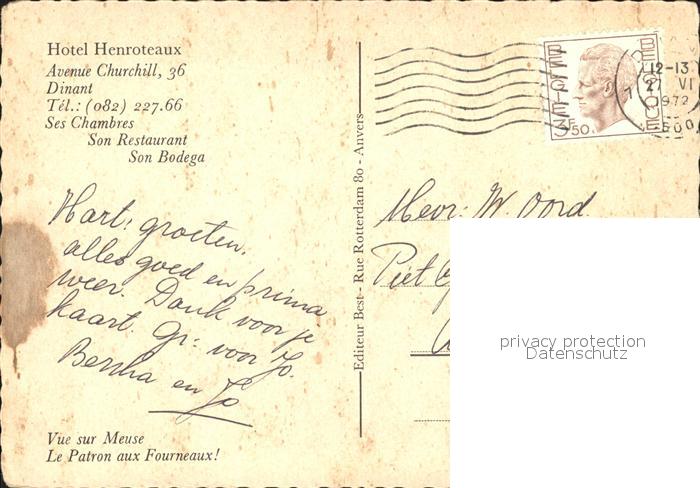 Hotel Henroteaux
Avenue Churchill, 36
Dinant
Tél.: (082) 227.66
Ses Chambres
Son Restaurant
Son Bodega
Hart. groeten.
alles goed en prima
weer. Dank voor je
kaart. Gr. voor Jo.
Bertha en Jo
Vue sur Meuse
Le Patron aux Fourneaux!
Editeur Best - Rue Rotterdam 80 - Anvers
BELGIE BELGIQUE
3F50
12-13
27 VI
1972
Mevr. W. Oord
Piet
privacy protection
Datenschutz